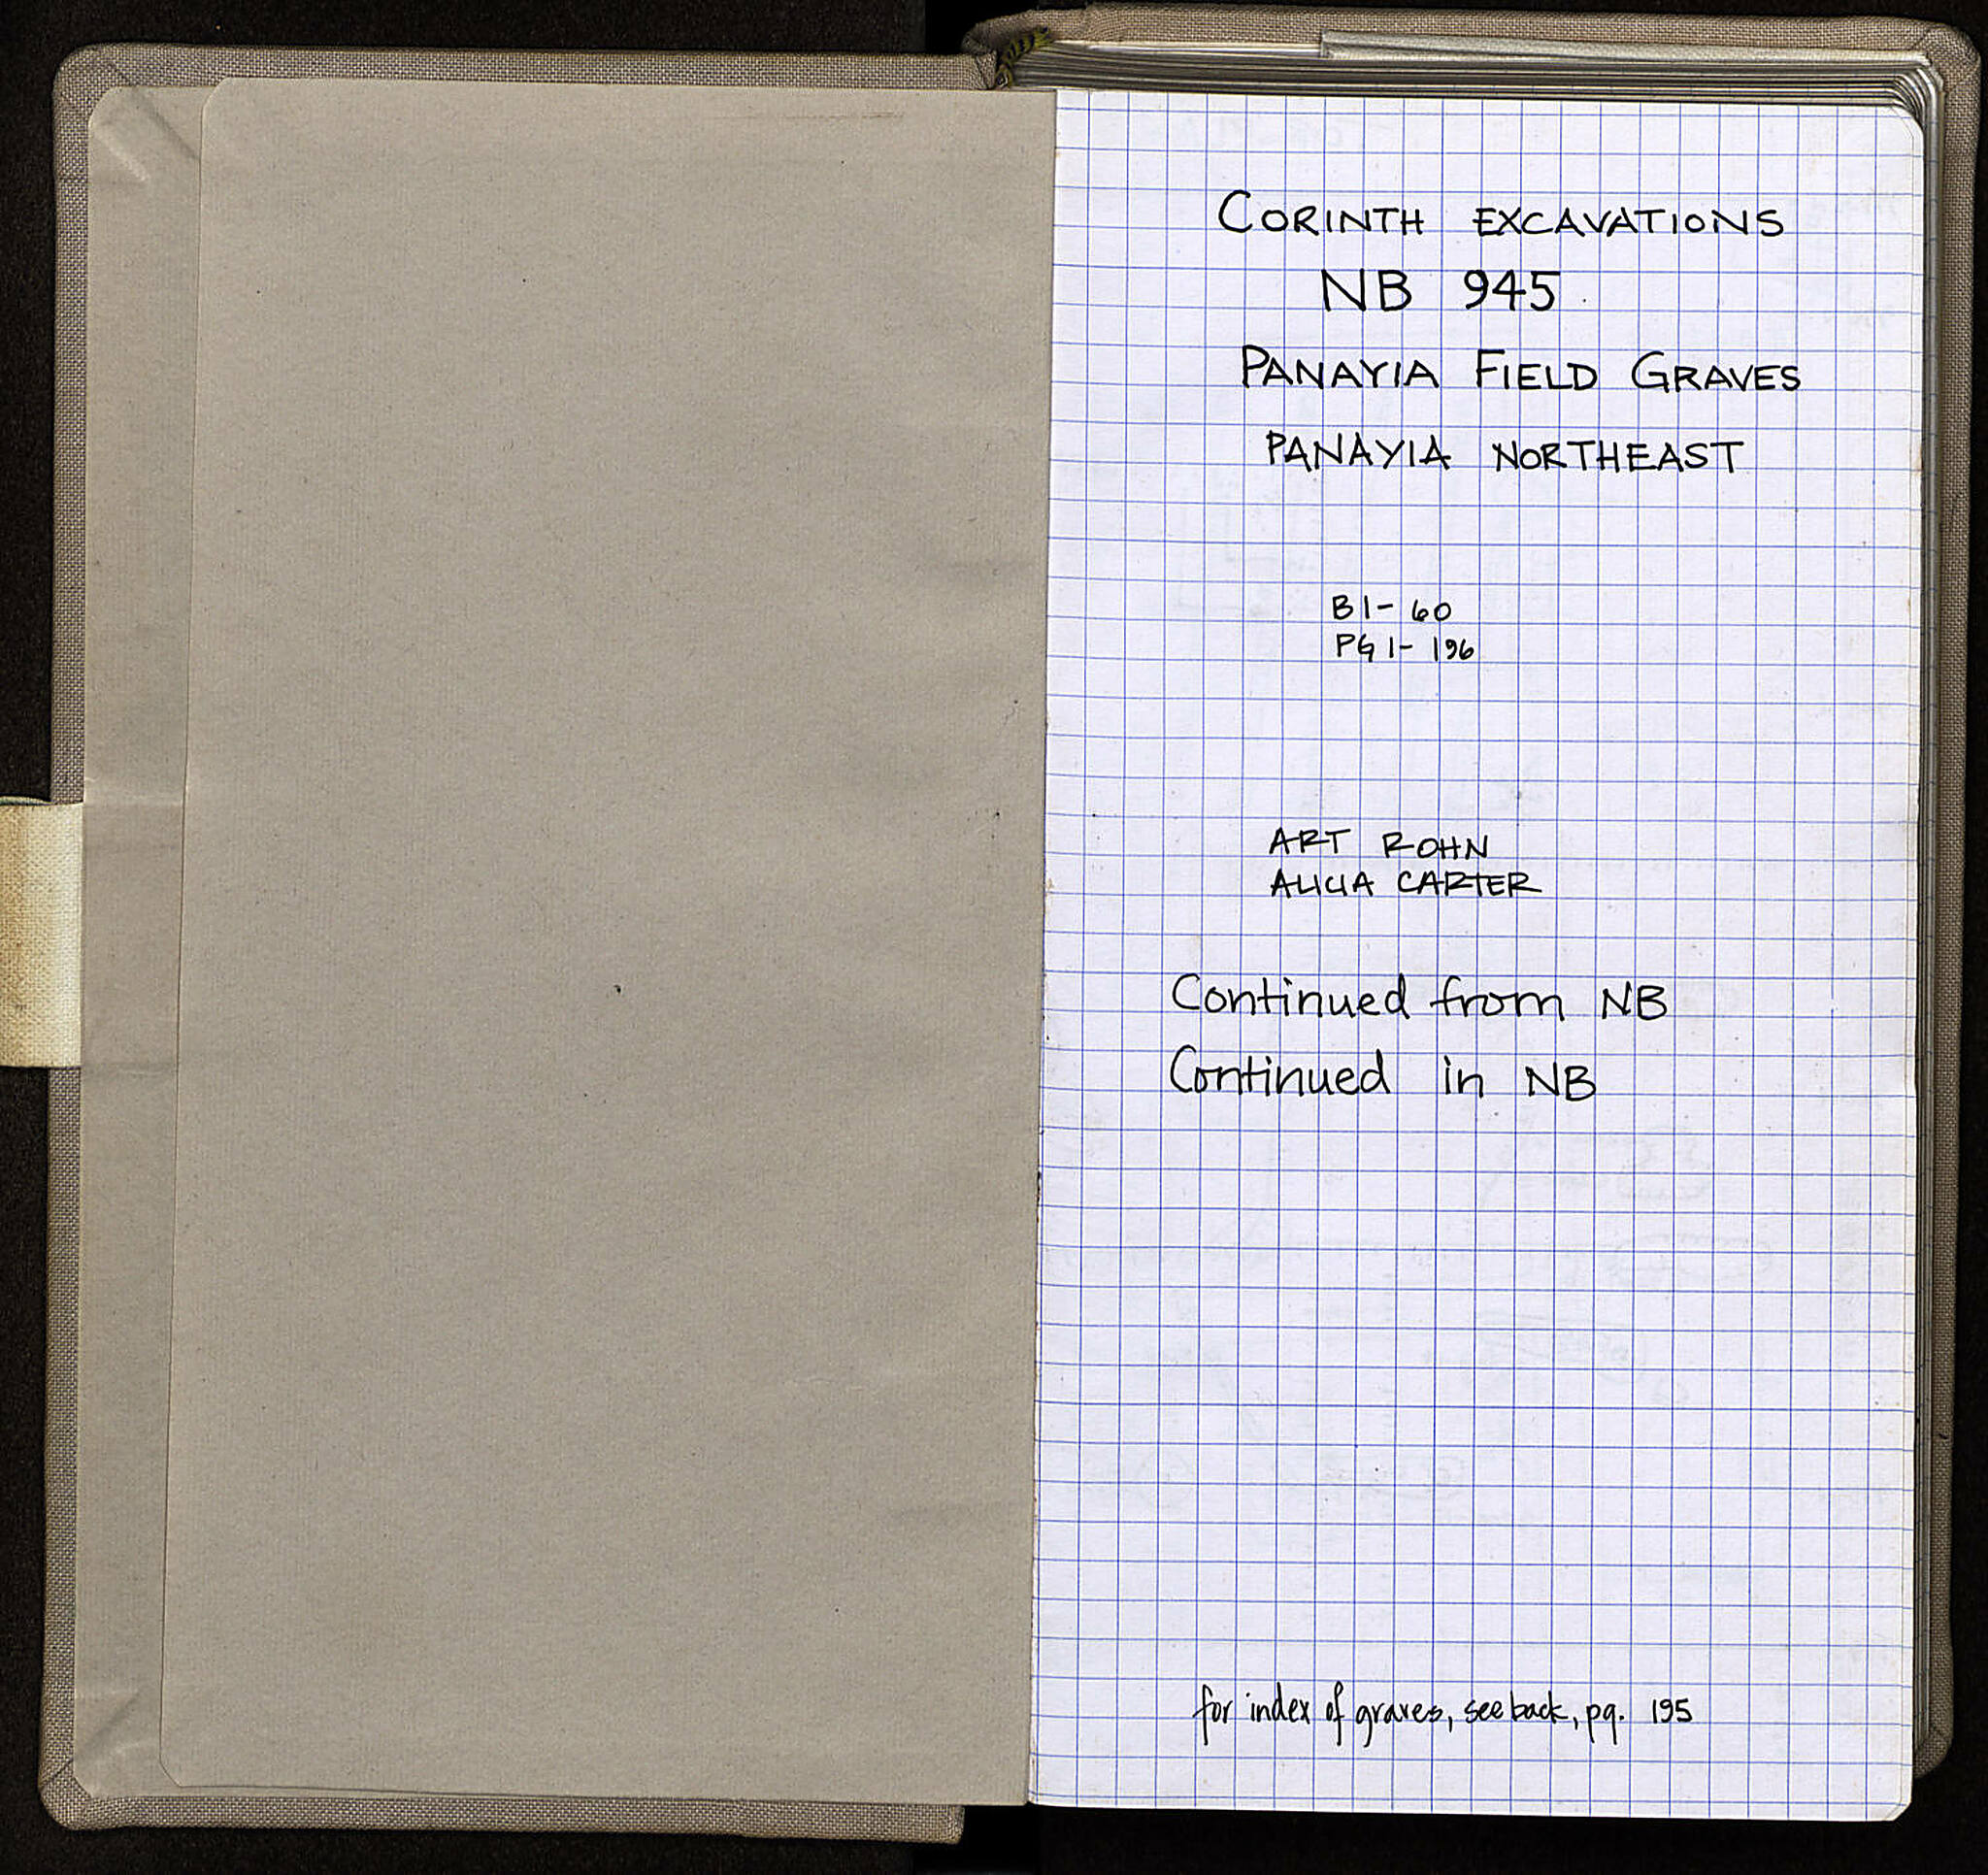 CORINTH EXCAVATIONS
NB 945
PANAYIA FIELD GRAVES
PANAYIA NORTHEAST
B 1- 60
PG 1- 196
ART ROHN
ALICIA CARTER
Continued from NB
Continued in NB
for index of graves, see back, pg. 195